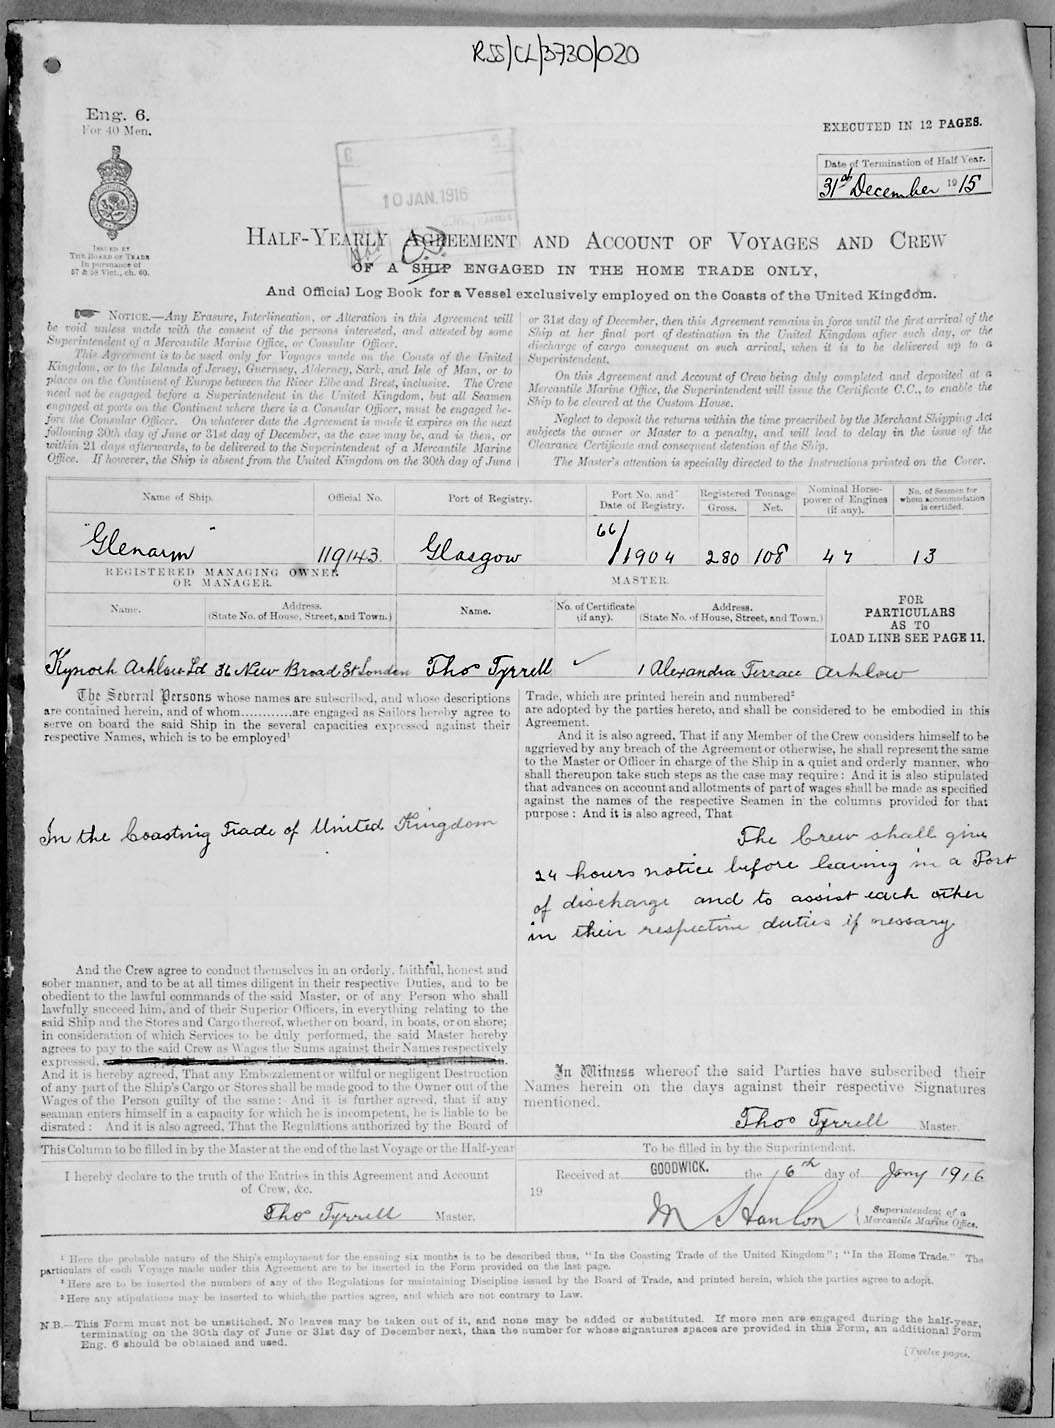 RSS/CL/3730/020
Eng. 6.
For 40 Men.
EXECUTED IN 12 PAGES.
Date of Termination of Half Year.
31st December 1915
10 JAN. 1916
ISSUED BY
THE BOARD OF TRADE
In pursuance of
57 & 58 Vict., ch. 60.
HALF-YEARLY AGREEMENT AND ACCOUNT OF VOYAGES AND CREW
OF A SHIP ENGAGED IN THE HOME TRADE ONLY,
And Official Log Book for a Vessel exclusively employed on the Coasts of the United Kingdom.
NOTICE.—Any Erasure, Interlineation, or Alteration in this Agreement will
be void unless made with the consent of the persons interested, and attested by some
Superintendent of a Mercantile Marine Office, or Consular Officer.
This Agreement is to be used only for Voyages made on the Coasts of the United
Kingdom, or to the Islands of Jersey, Guernsey, Alderney, Sark, and Isle of Man, or to
places on the Continent of Europe between the River Elbe and Brest, inclusive. The Crew
need not be engaged before a Superintendent in the United Kingdom, but all Seamen
engaged at ports on the Continent where there is a Consular Officer, must be engaged be-
fore the Consular Officer. On whatever date the Agreement is made it expires on the next
following 30th day of June or 31st day of December, as the case may be, and is then, or
within 21 days afterwards, to be delivered to the Superintendent of a Mercantile Marine
Office. If however, the Ship is absent from the United Kingdom on the 30th day of June
or 31st day of December, then this Agreement remains in force until the first arrival of the
Ship at her final port of destination in the United Kingdom after such day, or the
discharge of cargo consequent on such arrival, when it is to be delivered up to a
Superintendent.
On this Agreement and Account of Crew being duly completed and deposited at a
Mercantile Marine Office, the Superintendent will issue the Certificate C.C., to enable the
Ship to be cleared at the Custom House.
Neglect to deposit the returns within the time prescribed by the Merchant Shipping Act
subjects the owner or Master to a penalty, and will lead to delay in the issue of the
Clearance Certificate and consequent detention of the Ship.
The Master's attention is specially directed to the Instructions printed on the Cover.
Name of Ship. Official No. Port of Registry. Port No. and Date of Registry. Registered Tonnage Gross. Net. Nominal Horse-power of Engines (if any). No. of Seamen for whom accommodation is certified.
"Glenarm" 119143. Glasgow 66/1904 280 108 47 13
REGISTERED MANAGING OWNER
OR MANAGER.
MASTER.
Name. Address. (State No. of House, Street, and Town.) Name. No. of Certificate (if any). Address. (State No. of House, Street, and Town.)
FOR
PARTICULARS
AS TO
LOAD LINE SEE PAGE 11.
Kynoch Arklow Ld 36 New Broad St London Thos Tyrrell ✓ 1 Alexandra Terrace Arklow
The Several Persons whose names are subscribed, and whose descriptions
are contained herein, and of whom............are engaged as Sailors hereby agree to
serve on board the said Ship in the several capacities expressed against their
respective Names, which is to be employed¹
In the Coasting Trade of United Kingdom
And the Crew agree to conduct themselves in an orderly, faithful, honest and
sober manner, and to be at all times diligent in their respective Duties, and to be
obedient to the lawful commands of the said Master, or of any Person who shall
lawfully succeed him, and of their Superior Officers, in everything relating to the
said Ship and the Stores and Cargo thereof, whether on board, in boats, or on shore;
in consideration of which Services to be duly performed, the said Master hereby
agrees to pay to the said Crew as Wages the Sums against their Names respectively
expressed,
And it is hereby agreed, That any Embezzlement or wilful or negligent Destruction
of any part of the Ship's Cargo or Stores shall be made good to the Owner out of the
Wages of the Person guilty of the same: And it is further agreed, that if any
seaman enters himself in a capacity for which he is incompetent, he is liable to be
disrated: And it is also agreed, That the Regulations authorized by the Board of
Trade, which are printed herein and numbered²
are adopted by the parties hereto, and shall be considered to be embodied in this
Agreement.
And it is also agreed, That if any Member of the Crew considers himself to be
aggrieved by any breach of the Agreement or otherwise, he shall represent the same
to the Master or Officer in charge of the Ship in a quiet and orderly manner, who
shall thereupon take such steps as the case may require: And it is also stipulated
that advances on account and allotments of part of wages shall be made as specified
against the names of the respective Seamen in the columns provided for that
purpose: And it is also agreed, That
The Crew shall give
24 hours notice before leaving in a Port
of discharge and to assist each other
in their respective duties if nessary
In Witness whereof the said Parties have subscribed their
Names herein on the days against their respective Signatures
mentioned.
Thos Tyrrell Master.
This Column to be filled in by the Master at the end of the last Voyage or the Half-year
I hereby declare to the truth of the Entries in this Agreement and Account
of Crew, &c.
Thos Tyrrell Master.
To be filled in by the Superintendent.
Received at GOODWICK. the 6th day of Jany 1916
19
M Hanlon Superintendent of a Mercantile Marine Office.
¹ Here the probable nature of the Ship's employment for the ensuing six months is to be described thus, "In the Coasting Trade of the United Kingdom"; "In the Home Trade." The
particulars of each Voyage made under this Agreement are to be inserted in the Form provided on the last page.
² Here are to be inserted the numbers of any of the Regulations for maintaining Discipline issued by the Board of Trade, and printed herein, which the parties agree to adopt.
³ Here any stipulations may be inserted to which the parties agree, and which are not contrary to Law.
N.B.—This Form must not be unstitched. No leaves may be taken out of it, and none may be added or substituted. If more men are engaged during the half-year,
terminating on the 30th day of June or 31st day of December next, than the number for whose signatures spaces are provided in this Form, an additional Form
Eng. 6 should be obtained and used.
[Twelve pages.